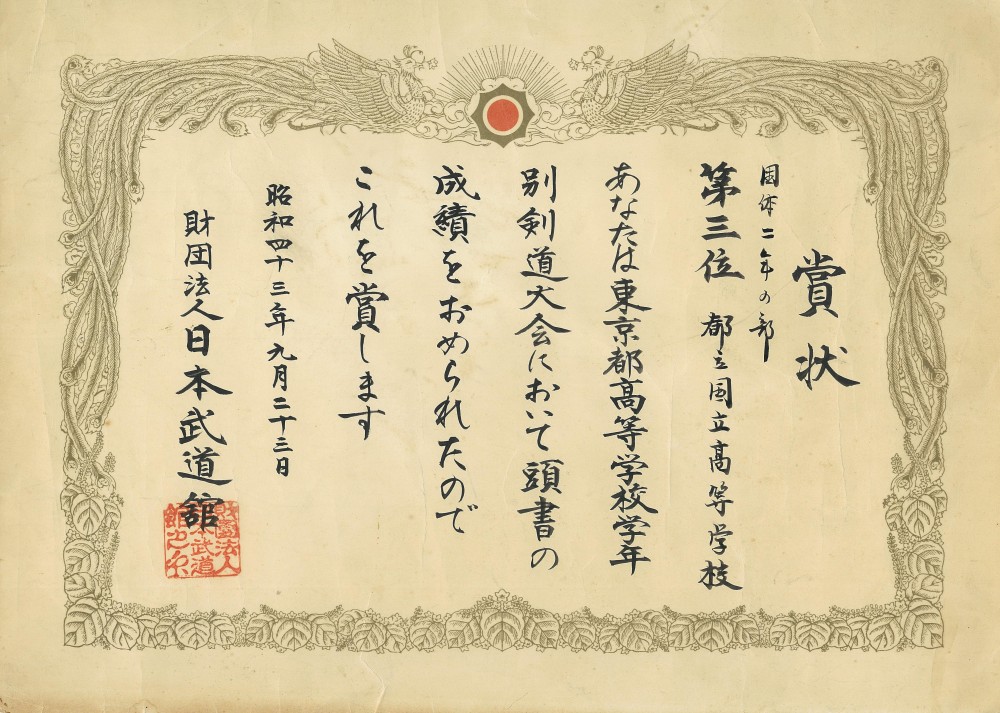 賞状
団体二年の部
第三位 都立国立高等学校
あなたは東京都高等学校学年
別剣道大会において頭書の
成績をおめられたので
これを賞します
昭和四十三年九月二十三日
財団法人日本武道館
財團法人
本武道
館之印